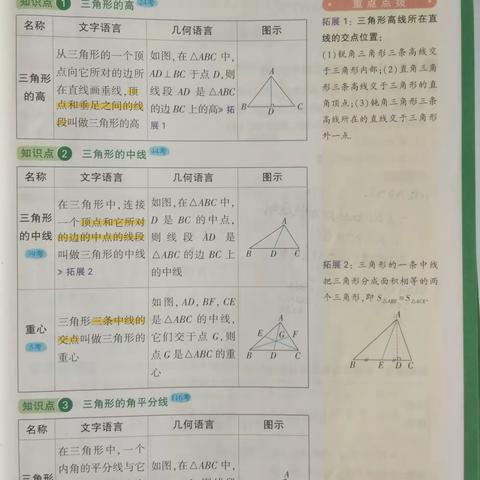 知识点 1 三角形的高 24考
名称 文字语言 几何语言 图示
三角形
的高
从三角形的一个顶
点向它所对的边所
在直线画垂线,顶
点和垂足之间的线
段叫做三角形的高
如图,在△ABC 中,
AD⊥BC 于点 D,则
线段 AD 是△ABC
的边 BC 上的高» 拓
展1
A
B D C
知识点 2 三角形的中线 44考
名称 文字语言 几何语言 图示
三角形
的中线
39考
在三角形中,连接
一个顶点和它所对
的边的中点的线段
叫做三角形的中线
» 拓展 2
如图,在△ABC 中,
D 是 BC 的中点,
则线段 AD 是
△ABC 的边 BC 上
的中线
A
B D C
重心
5考
三角形三条中线的
交点叫做三角形的
重心
如图, AD, BF, CE
是△ABC 的中线,
它们交于点 G,则
点 G 是△ABC 的重
心
A
E G F
B D C
知识点 3 三角形的角平分线 116考
名称 文字语言 几何语言 图示
三角形
在三角形中,一个
内角的平分线与它
如图,在△ABC 中,
A
重点点拨
拓展 1: 三角形高线所在直
线的交点位置:
(1)锐角三角形三条高线交
于三角形内部;(2)直角三角
形三条高线交于三角形的直
角顶点;(3)钝角三角形三条
高线所在的直线交于三角形
外一点.
拓展 2: 三角形的一条中线
把三角形分成面积相等的两
个三角形,即 S△ABE=S△ACE.
A
B E D C